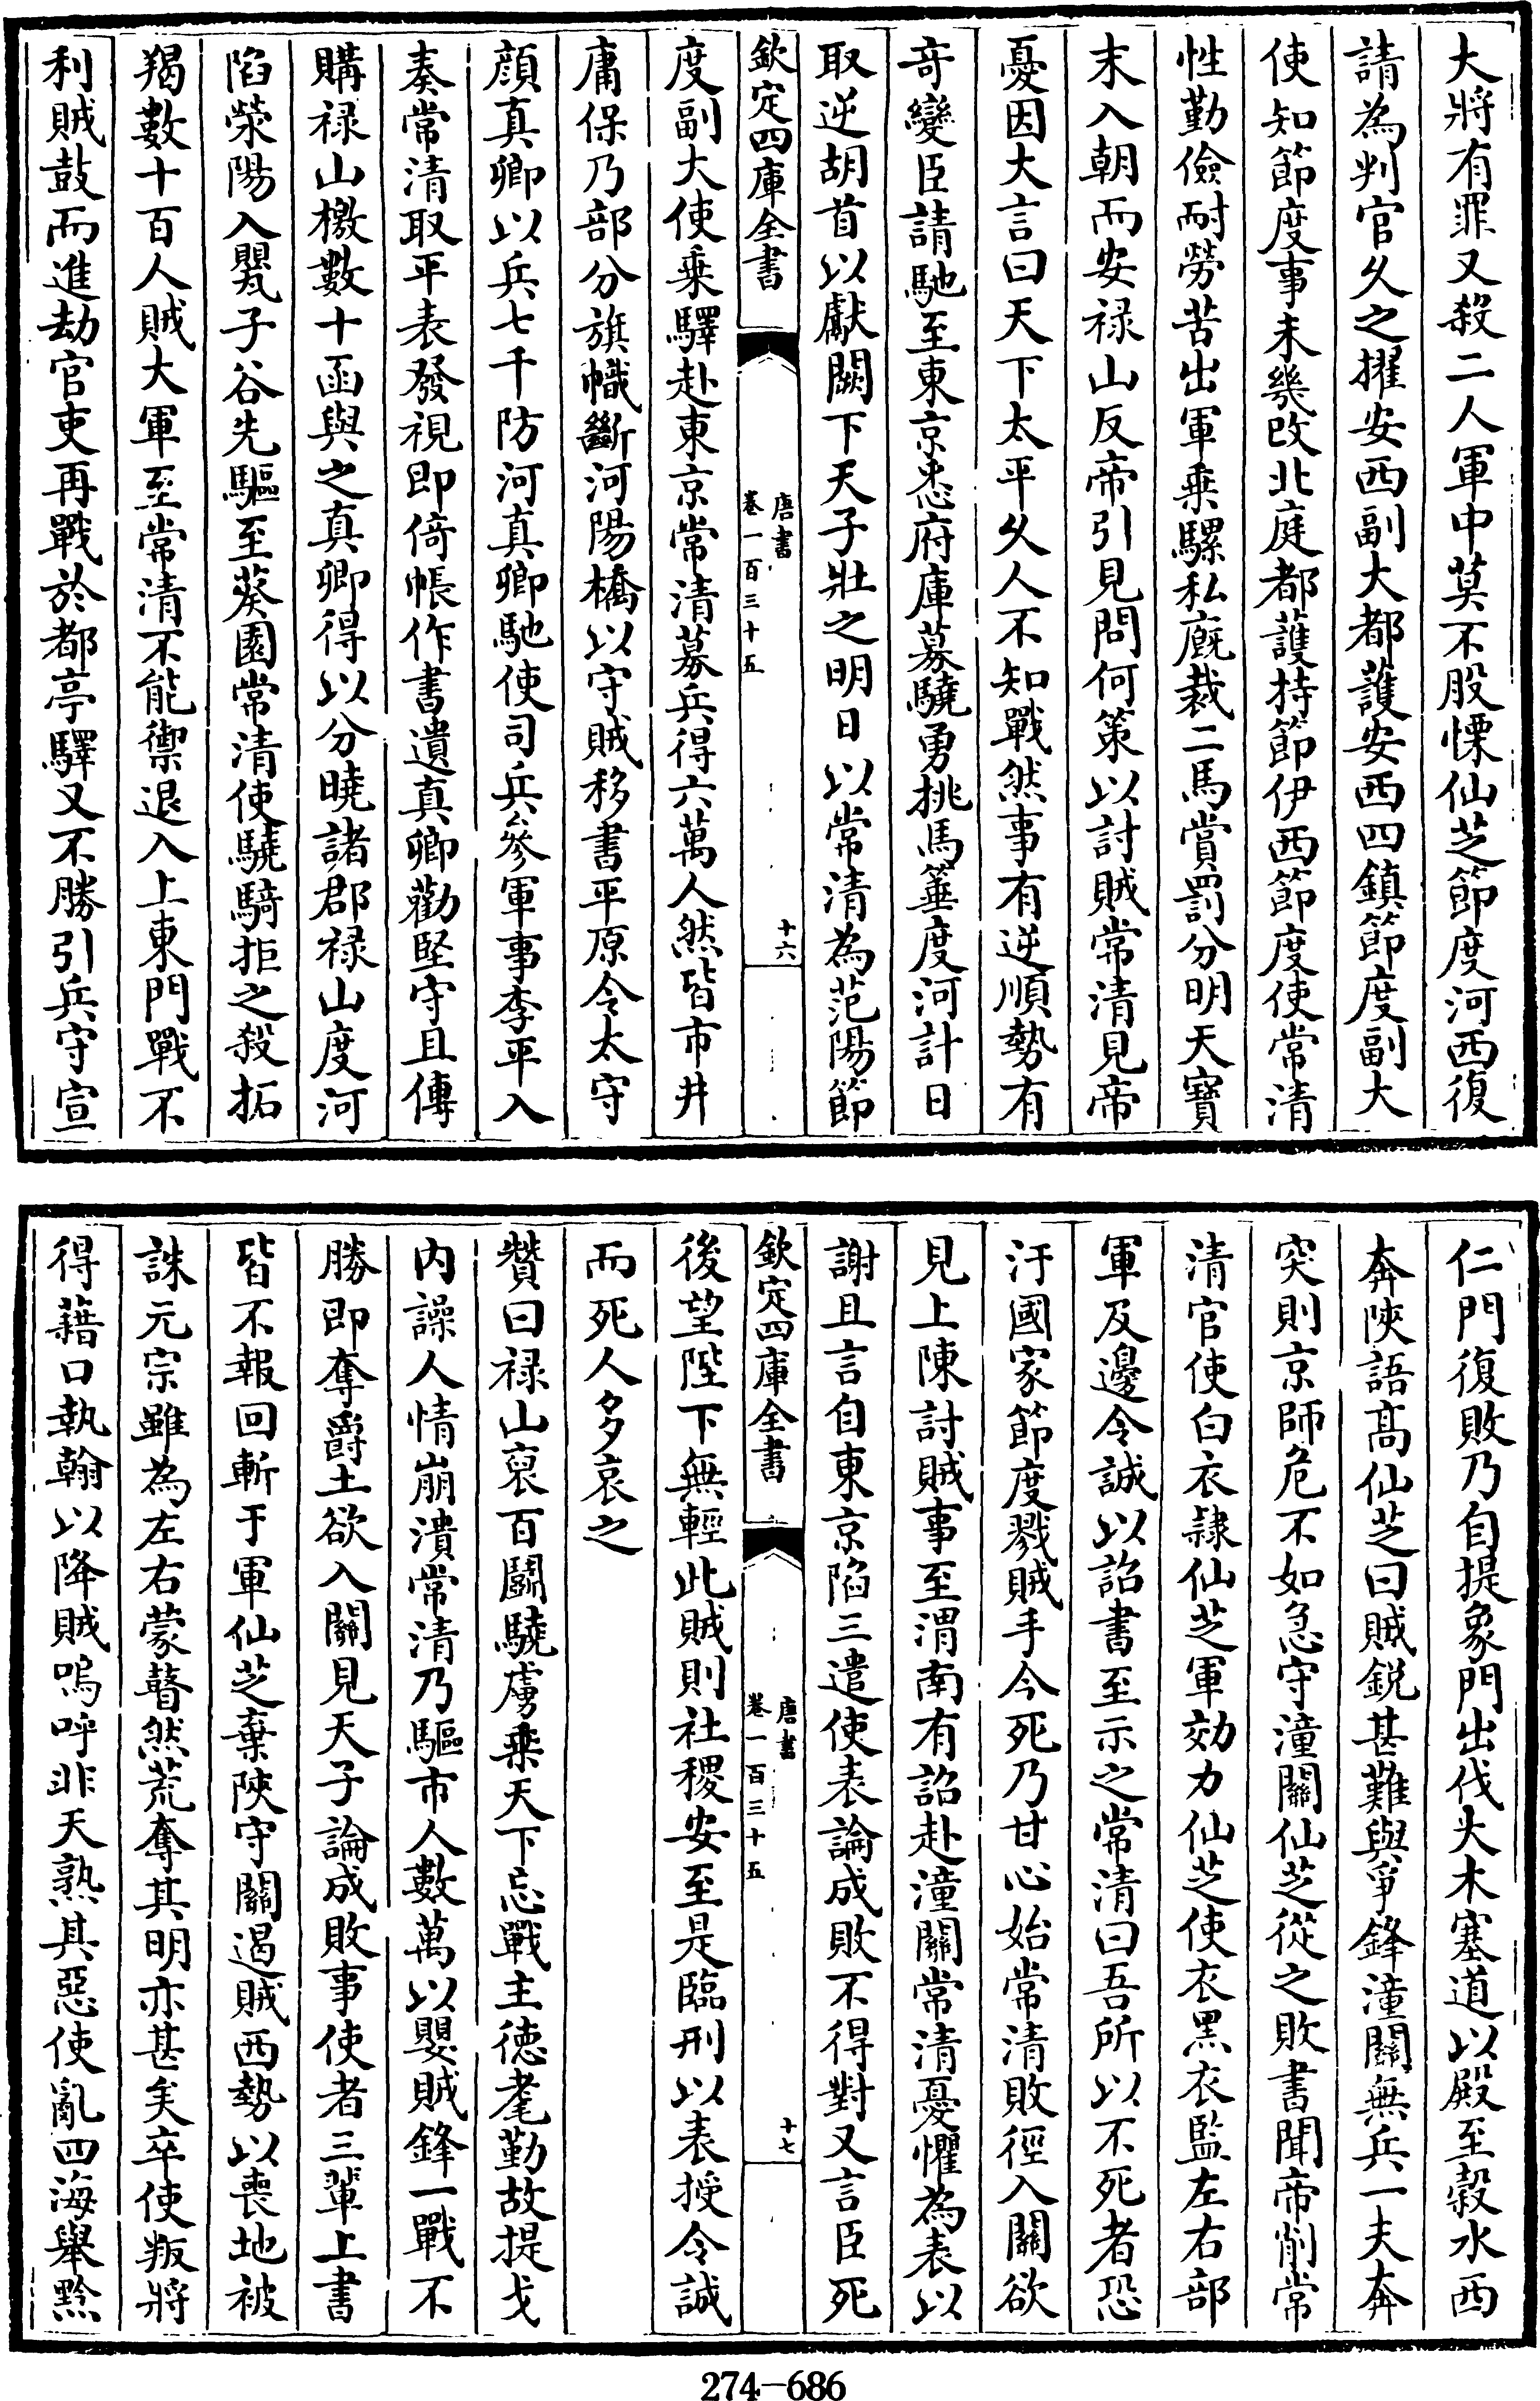 大將有罪又殺二人軍中莫不股慄仙芝節度河西復
請為判官久之擢安西副大都䕶安西四鎮節度副大
使知節度事未幾改北庭都䕶持節伊西節度使常清
性勤儉耐勞苦出軍乗騾私廐裁二馬賞罰分明天寳
末入朝而安禄山反帝引見問何策以討賊常清見帝
憂因大言曰天下太平久人不知戰然事有逆順勢有
竒變臣請馳至東京悉府庫募驍勇挑馬箠度河計日
取逆胡首以獻闕下天子壯之明日以常清為范陽節
欽定四庫全書
唐書
卷一百三十五
十六
度副大使乗驛赴東京常清募兵得六萬人然皆市井
庸保乃部分旗幟斷河陽橋以守賊移書平原令太守
顔真卿以兵七千防河真卿馳使司兵參軍事李平入
奏常清取平表發視即倚帳作書遺真卿勸堅守且傳
購禄山檄數十函與之真卿得以分曉諸郡禄山度河
陷滎陽入甖子谷先驅至葵園常清使驍騎拒之殺拓
羯數十百人賊大軍至常清不能禦退入上東門戰不
利賊鼓而進劫官吏再戰於都亭驛又不勝引兵守宣
仁門復敗乃自提象門出伐大木塞道以殿至穀水西
奔陜語髙仙芝曰賊銳甚難與爭鋒潼關無兵一夫奔
突則京師危不如急守潼關仙芝從之敗書聞帝削常
清官使白衣隸仙芝軍効力仙芝使衣黑衣監左右部
軍及邊令誠以詔書至示之常清曰吾所以不死者恐
汙國家節度戮賊手今死乃甘心始常清敗徑入關欲
見上陳討賊事至渭南有詔赴潼關常清憂懼為表以
謝且言自東京陷三遣使表論成敗不得對又言臣死
欽定四庫全書
唐書
卷一百三十五
十七
後望陛下無輕此賊則社稷安至是臨刑以表授令誠
而死人多哀之
贊曰禄山裒百鬬驍虜乗天下忘戰主徳耄勤故提戈
内譟人情崩潰常清乃驅市人數萬以嬰賊鋒一戰不
勝即奪爵土欲入關見天子論成敗事使者三輩上書
皆不報回斬于軍仙芝棄陜守關遏賊西勢以喪地被
誅元宗雖為左右蒙瞽然荒奪其明亦甚矣卒使叛將
得藉口執翰以降賊嗚呼非天熟其惡使亂四海舉黔
274-686